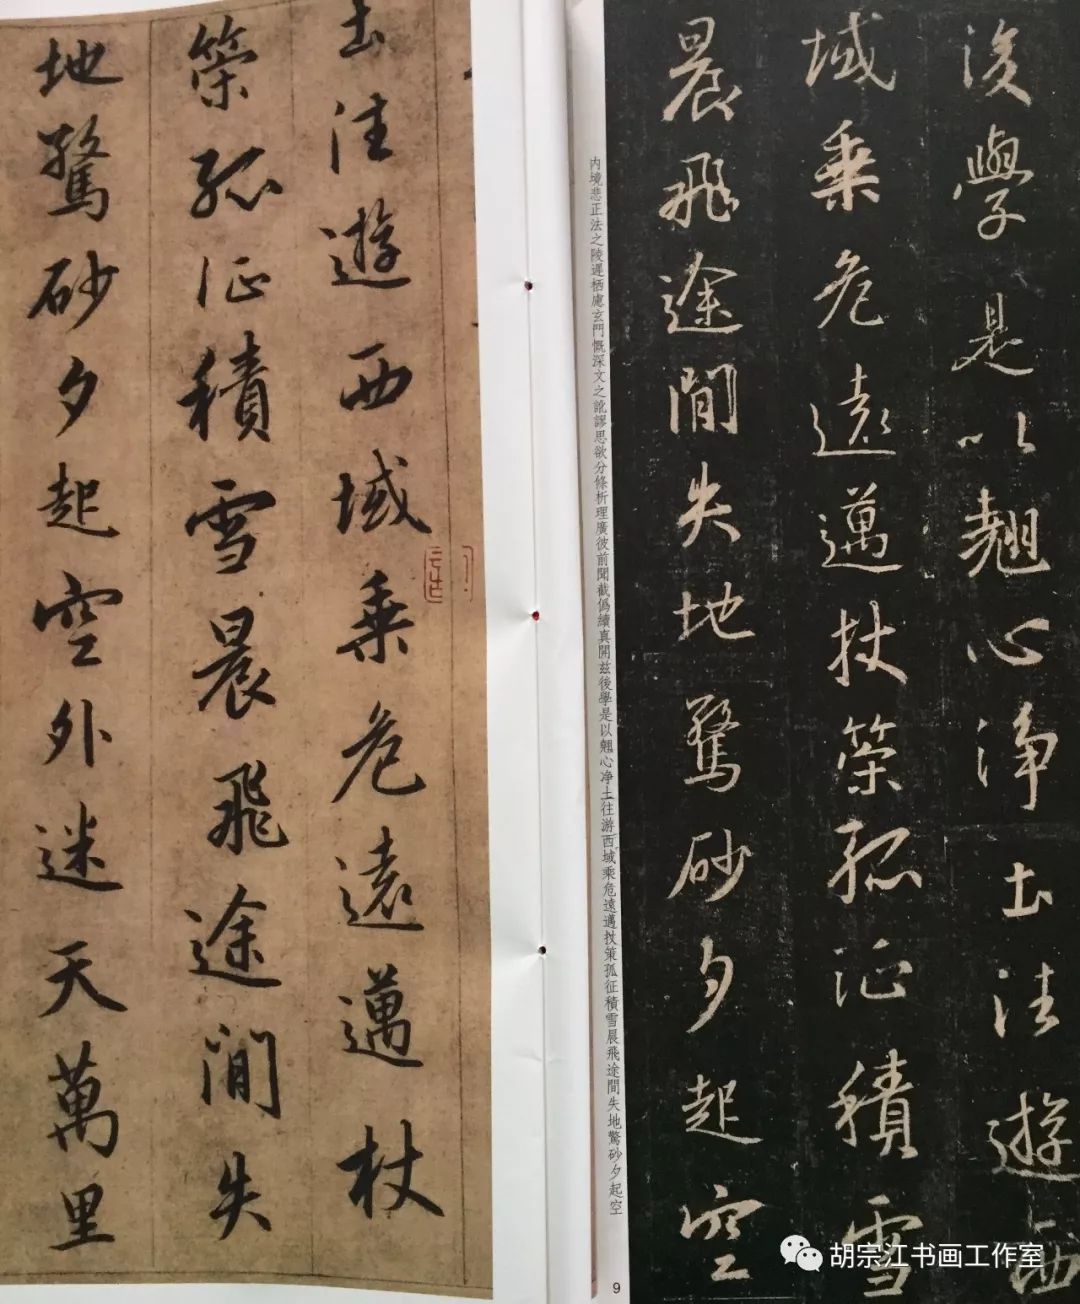 後學是以翹心淨土往遊西
域乘危遠邁杖策孤征積雪
晨飛途間失地驚砂夕起空
内境悲正法之陵遲栖慮玄門慨深文之訛謬思欲分條析理廣彼前聞截僞續真開兹後學是以翹心净土往游西域乘危遠邁杖策孤征積雪晨飛途間失地驚砂夕起空
9
土往遊西域乘危遠邁杖
策孤征積雪晨飛途間失
地驚砂夕起空外迷天萬里
胡宗江书画工作室